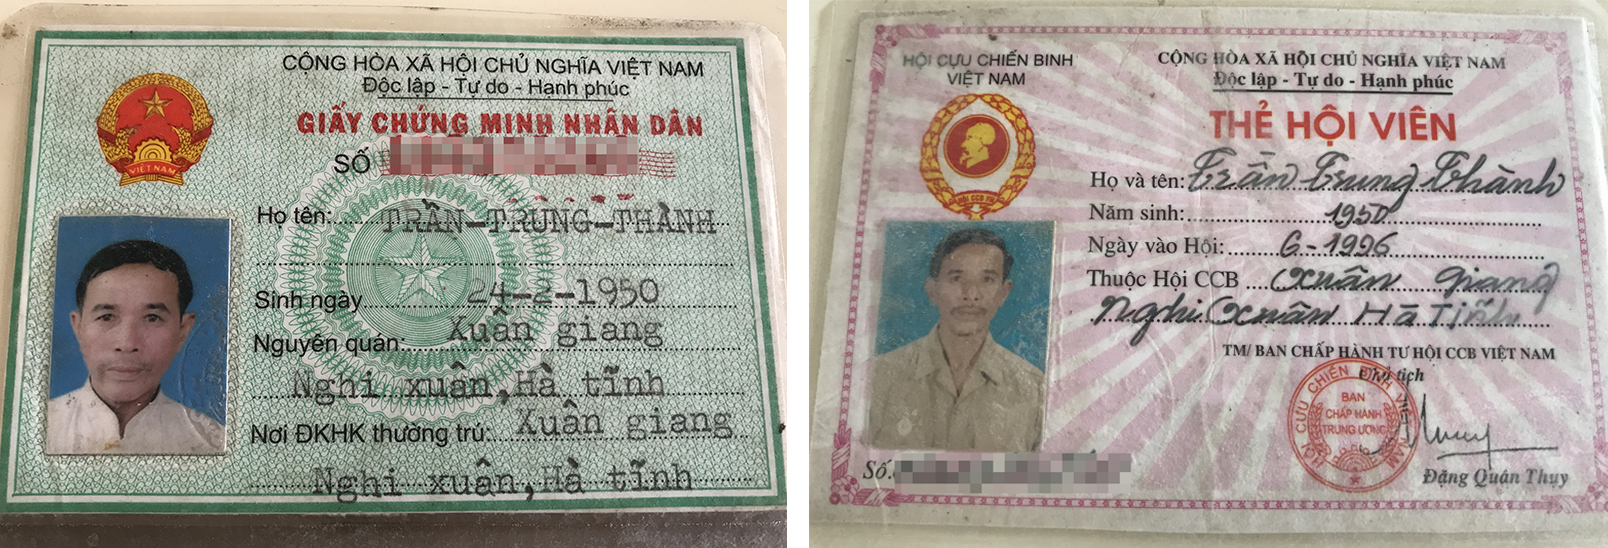 CỘNG HÒA XÃ HỘI CHỦ NGHĨA VIỆT NAM
Độc lập - Tự do - Hạnh phúc
GIẤY CHỨNG MINH NHÂN DÂN
SỐ
VIỆT NAM
Họ tên: TRẦN-TRUNG-THÀNH
Sinh ngày 24-2-1950
Nguyên quán: Xuân giang
Nghi xuân,Hà tĩnh
Nơi ĐKHK thường trú: Xuân giang
Nghi xuân,Hà tĩnh
HỘI CỰU CHIẾN BINH
VIỆT NAM
CỘNG HÒA XÃ HỘI CHỦ NGHĨA VIỆT NAM
Độc lập - Tự do - Hạnh phúc
THẺ HỘI VIÊN
Họ và tên: Trần Trung Thành
Năm sinh: 1950
Ngày vào Hội: 6-1996
Thuộc Hội CCB Xuân Giang
Nghi Xuân Hà Tĩnh
TM/ BAN CHẤP HÀNH TƯ HỘI CCB VIỆT NAM
Chủ tịch
HỘI CỰU CHIẾN BINH VIỆT
BAN
CHẤP HÀNH
TRUNG ƯƠNG
Đặng Quân Thụy
Số.